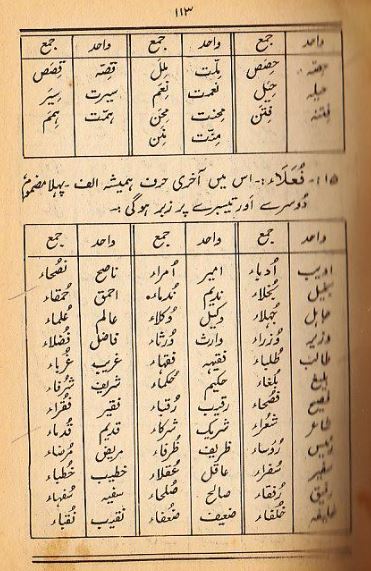 ۱۱۳
واحد جمع واحد جمع واحد جمع
حصّہ حِصَص مِلّت مِلَل قصّہ قِصَص
حیلہ حِیَل نعمت نِعَم سیرت سِیَر
فتنہ فِتَن محنت مِحَن ہمّت ہِمَم
منّت مِنَن
۱۱۵- فُعَلَاء:- اس میں آخری حرف ہمیشہ الف - پہلا مضموم
دُوسرے اور تیسرے پر زبر ہوگی:-
واحد جمع واحد جمع واحد جمع
ادیب اُدباء امیر اُمراء ناصح نُصحاء
بخیل بُخلاء ندیم نُدماء احمق حُمقاء
جاہل جُہلاء وکیل وُکلاء عالم عُلماء
وزیر وُزراء وارث وُرثاء فاضل فُضلاء
طالب طُلباء فقیہہ فقہاء غریب غُرباء
بلیغ بُلغاء حکیم حُکماء شریف شُرفاء
فصیح فُصحاء رقیب رُقباء فقیر فُقراء
شاعر شُعراء شریک شرکاء قدیم قُدماء
رئیس رُوساء ظریف ظُرفاء مریض مُرضاء
سفیر سُفراء عاقل عُقلاء خطیب خُطباء
رفیق رُفقاء صالح صُلحاء سفیہ سُفہاء
خلیفہ خُلفاء ضعیف ضُعفاء نقیب نُقباء